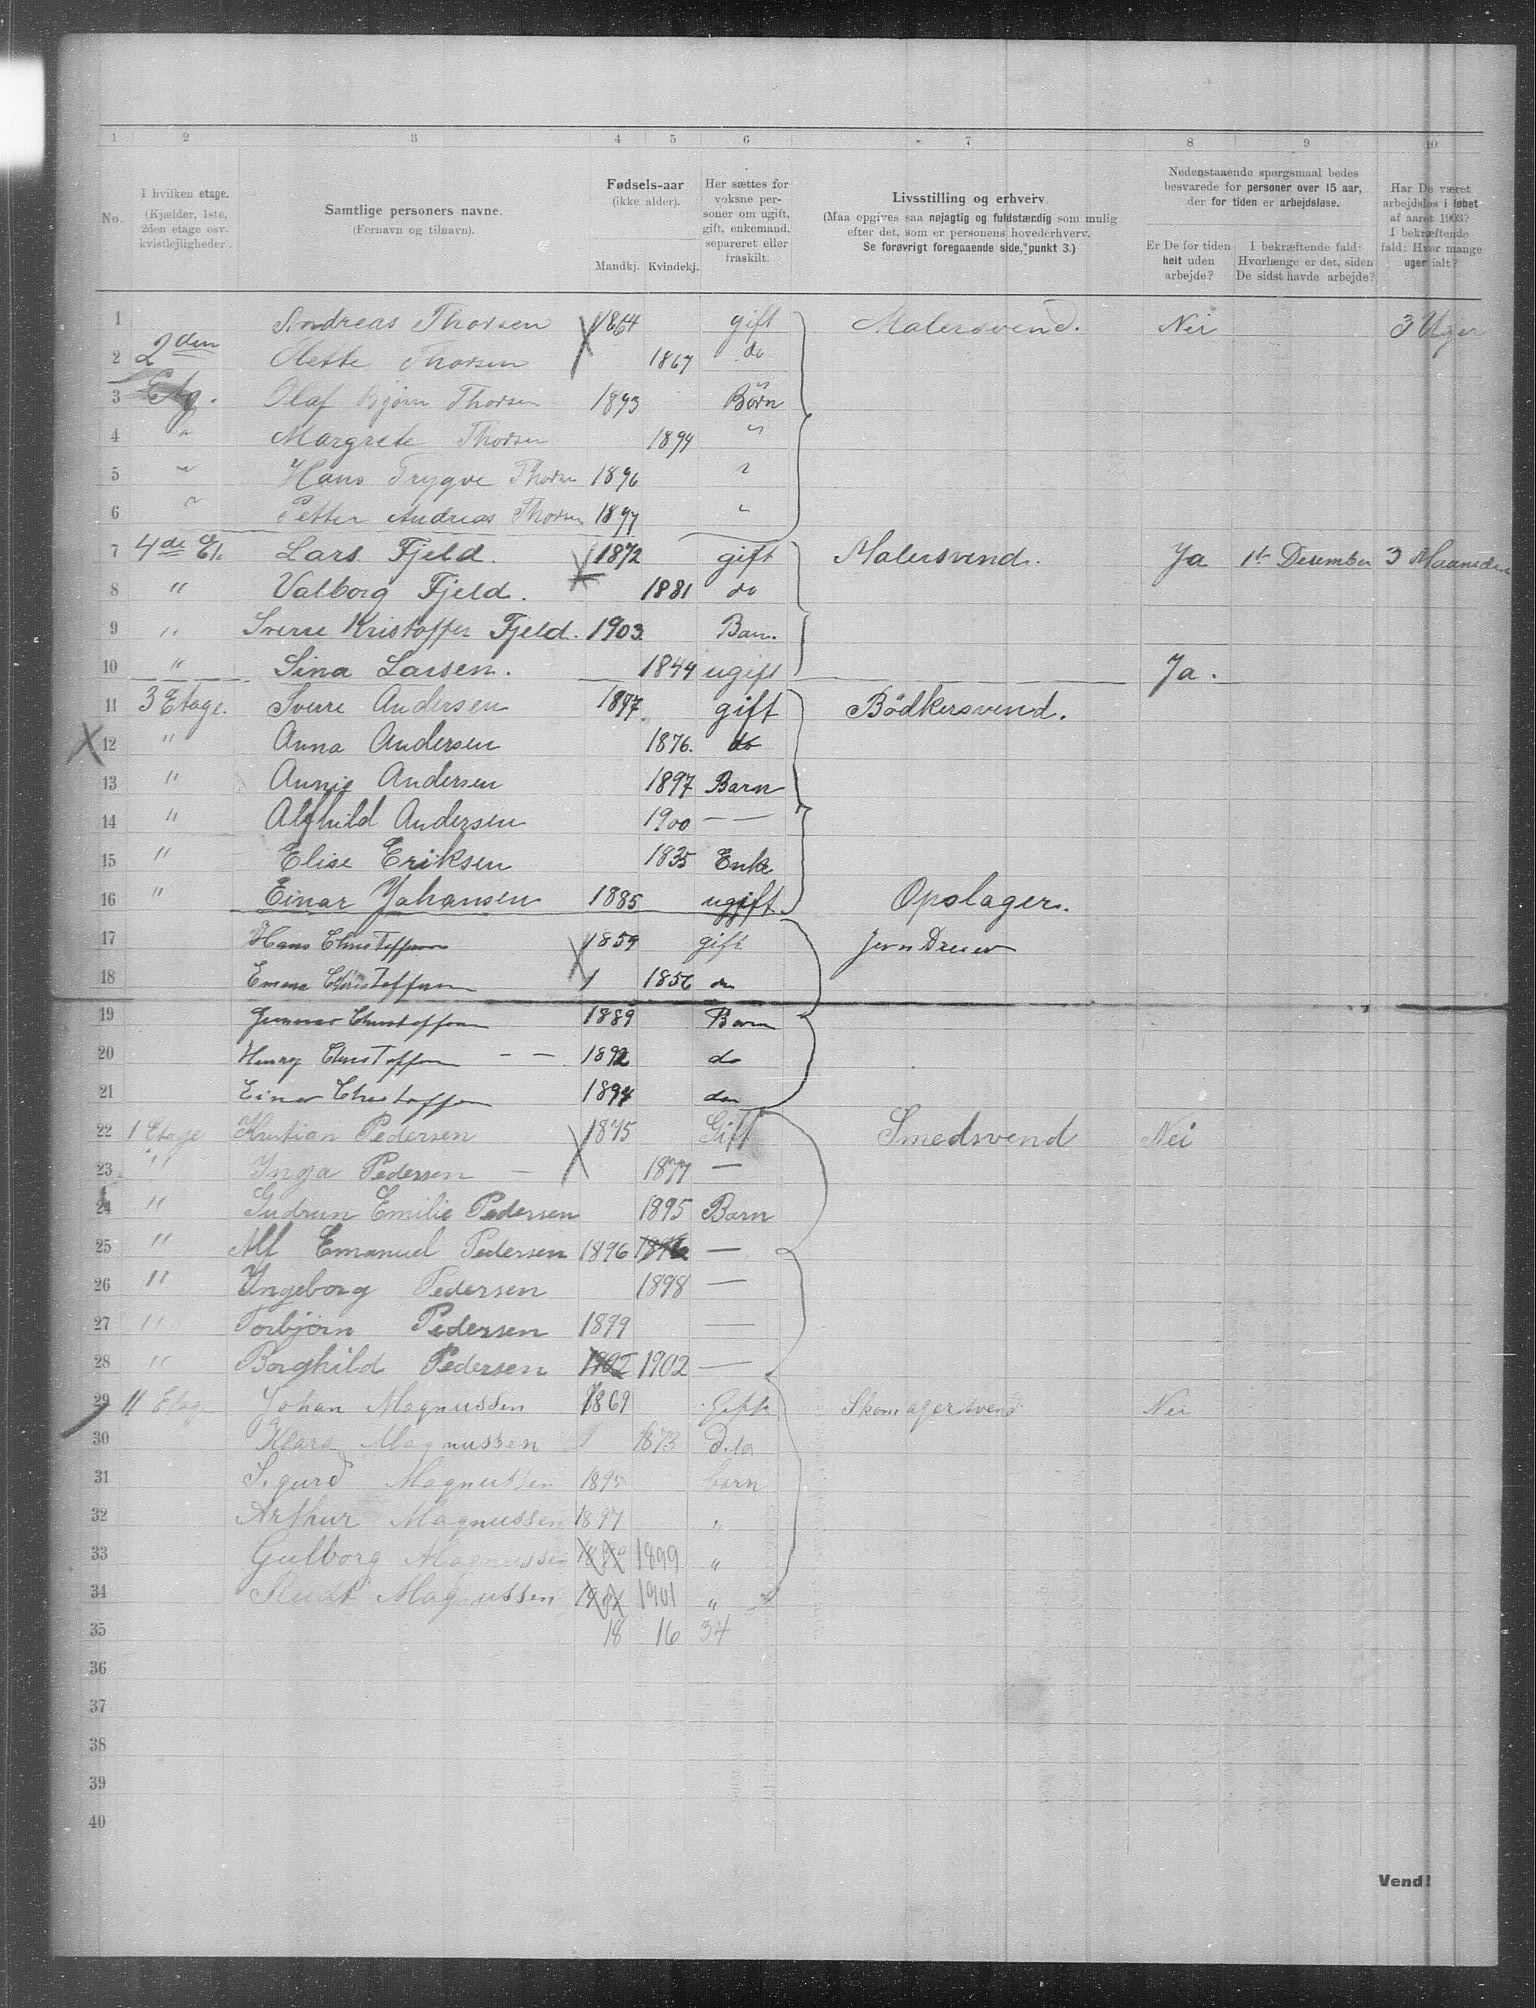 1 2 3 4 5 6 7 8 9 10
No.
I hvilken etage.
(Kjælder, 1ste,
2den etage osv.
kvistlejligheder).
Samtlige personers navne.
(Fornavn og tilnavn).
Fødsels-aar
(ikke alder).
Mandkj. Kvindekj.
Her sættes for
voksne per-
soner om ugift,
gift, enkemand,
separeret eller
fraskilt.
Livsstilling og erhverv.
(Maa opgives saa nøjagtig og fuldstændig som mulig
efter det, som er personens hovederhverv.
Se forøvrigt foregaaende side, punkt 3.)
Nedenstaaende spørgsmaal bedes
besvarede for personer over 15 aar,
der for tiden er arbejdsløse.
Er De for tiden
helt uden
arbejde?
I bekræftende fald:
Hvorlænge er det, siden
De sidst havde arbejde?
Har De været
arbejdsløs i løbet
af aaret 1903?
I bekræftende
fald: Hvor mange
uger ialt?
1 Andreas Thorsen 1864 gift Malersvend. Nei 3 Uger
2 2den Olette Thorsen 1867 do
3 Etg. Olaf Bjørn Thorsen 1893 Börn
4 " Margrete Thorsen 1894 "
5 " Hans Trygve Thorsen 1896 "
6 " Petter Andreas Thorsen 1897 "
7 4de Et. Lars Fjeld. 1872 gift Malersvend. Ja 1st Desember 3 Maaneder
8 " Valborg Fjeld. 1881 do
9 " Sverre Kristoffer Fjeld. 1903 Barn.
10 " Sina Larsen. 1844 ugift Ja.
11 3 Etage. Sverre Andersen 1877 gift Bödkersvend.
12 " Anna Andersen 1876. do
13 " Annie Andersen 1897 Barn
14 " Alfhild Andersen 1900 — —
15 " Elise Eriksen 1835 Enke
16 " Einar Johansen 1885 ugift Opslager.
17 Hans Christoffersen 1859 gift Jern Dreier
18 Emma Christoffersen 1856 do
19 Gunnar Christoffersen 1889 Barn
20 Henry Christoffersen — — 1892 do
21 Einar Christoffersen 1894 do
22 1 Etage Kristian Pedersen 1875 Gift Smedsvend Nei
23 " Inga Pedersen — 1877 —
24 " Gudrun Emilie Pedersen 1895 Barn
25 " Alf Emanuel Pedersen 1896 1896 —
26 " Yngeborg Pedersen 1898 —
27 " Torbjörn Pedersen 1899 —
28 " Borghild Pedersen 1902 1902 —
29 11 Etag Johan Magnussen 1869 Gift Skomagersvend Nei
30 Klara Magnussen 1873 dito
31 Sigurd Magnussen 1895 barn
32 Arthur Magnussen 1897 "
33 Gulborg Magnussen 1899 1899 "
34 Magnussen 1901 1901 "
35 18 16 34
36
37
38
39
40
Vend!